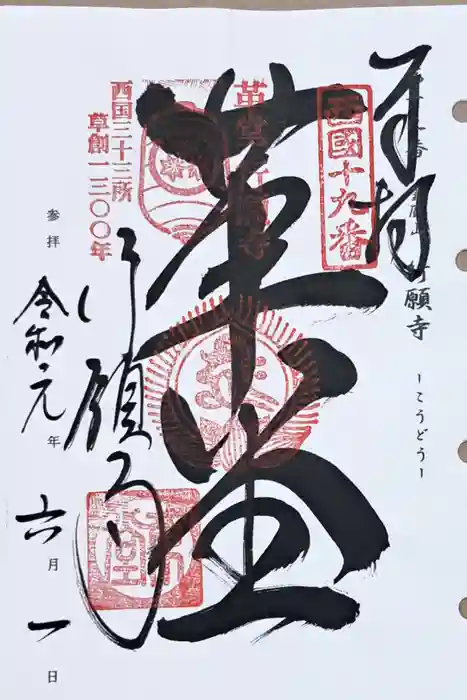 奉拝
願寺
ーこうどうー
西國十九番
革堂
行願寺
西国三十三所
草創一三〇〇年
参拝
令和元年六月一日